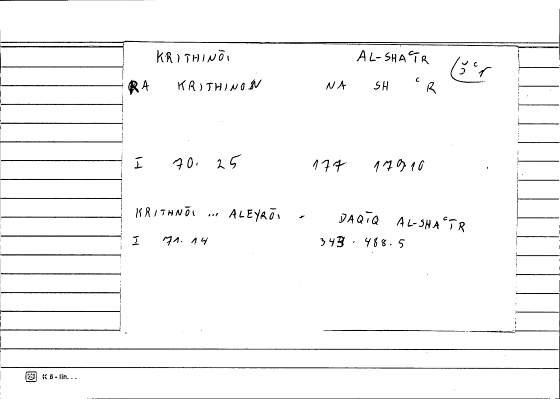 KRITHINŌI AL-SHAʿĪR
RA KRITHINON NA SH ʿ R
I 70. 25 177 17910
KRITHNŌI ... ALEYRŌI - DAQĪQ AL-SHAʿĪR
I 71. 14 343. 488. 5
K 6 - lin. . .